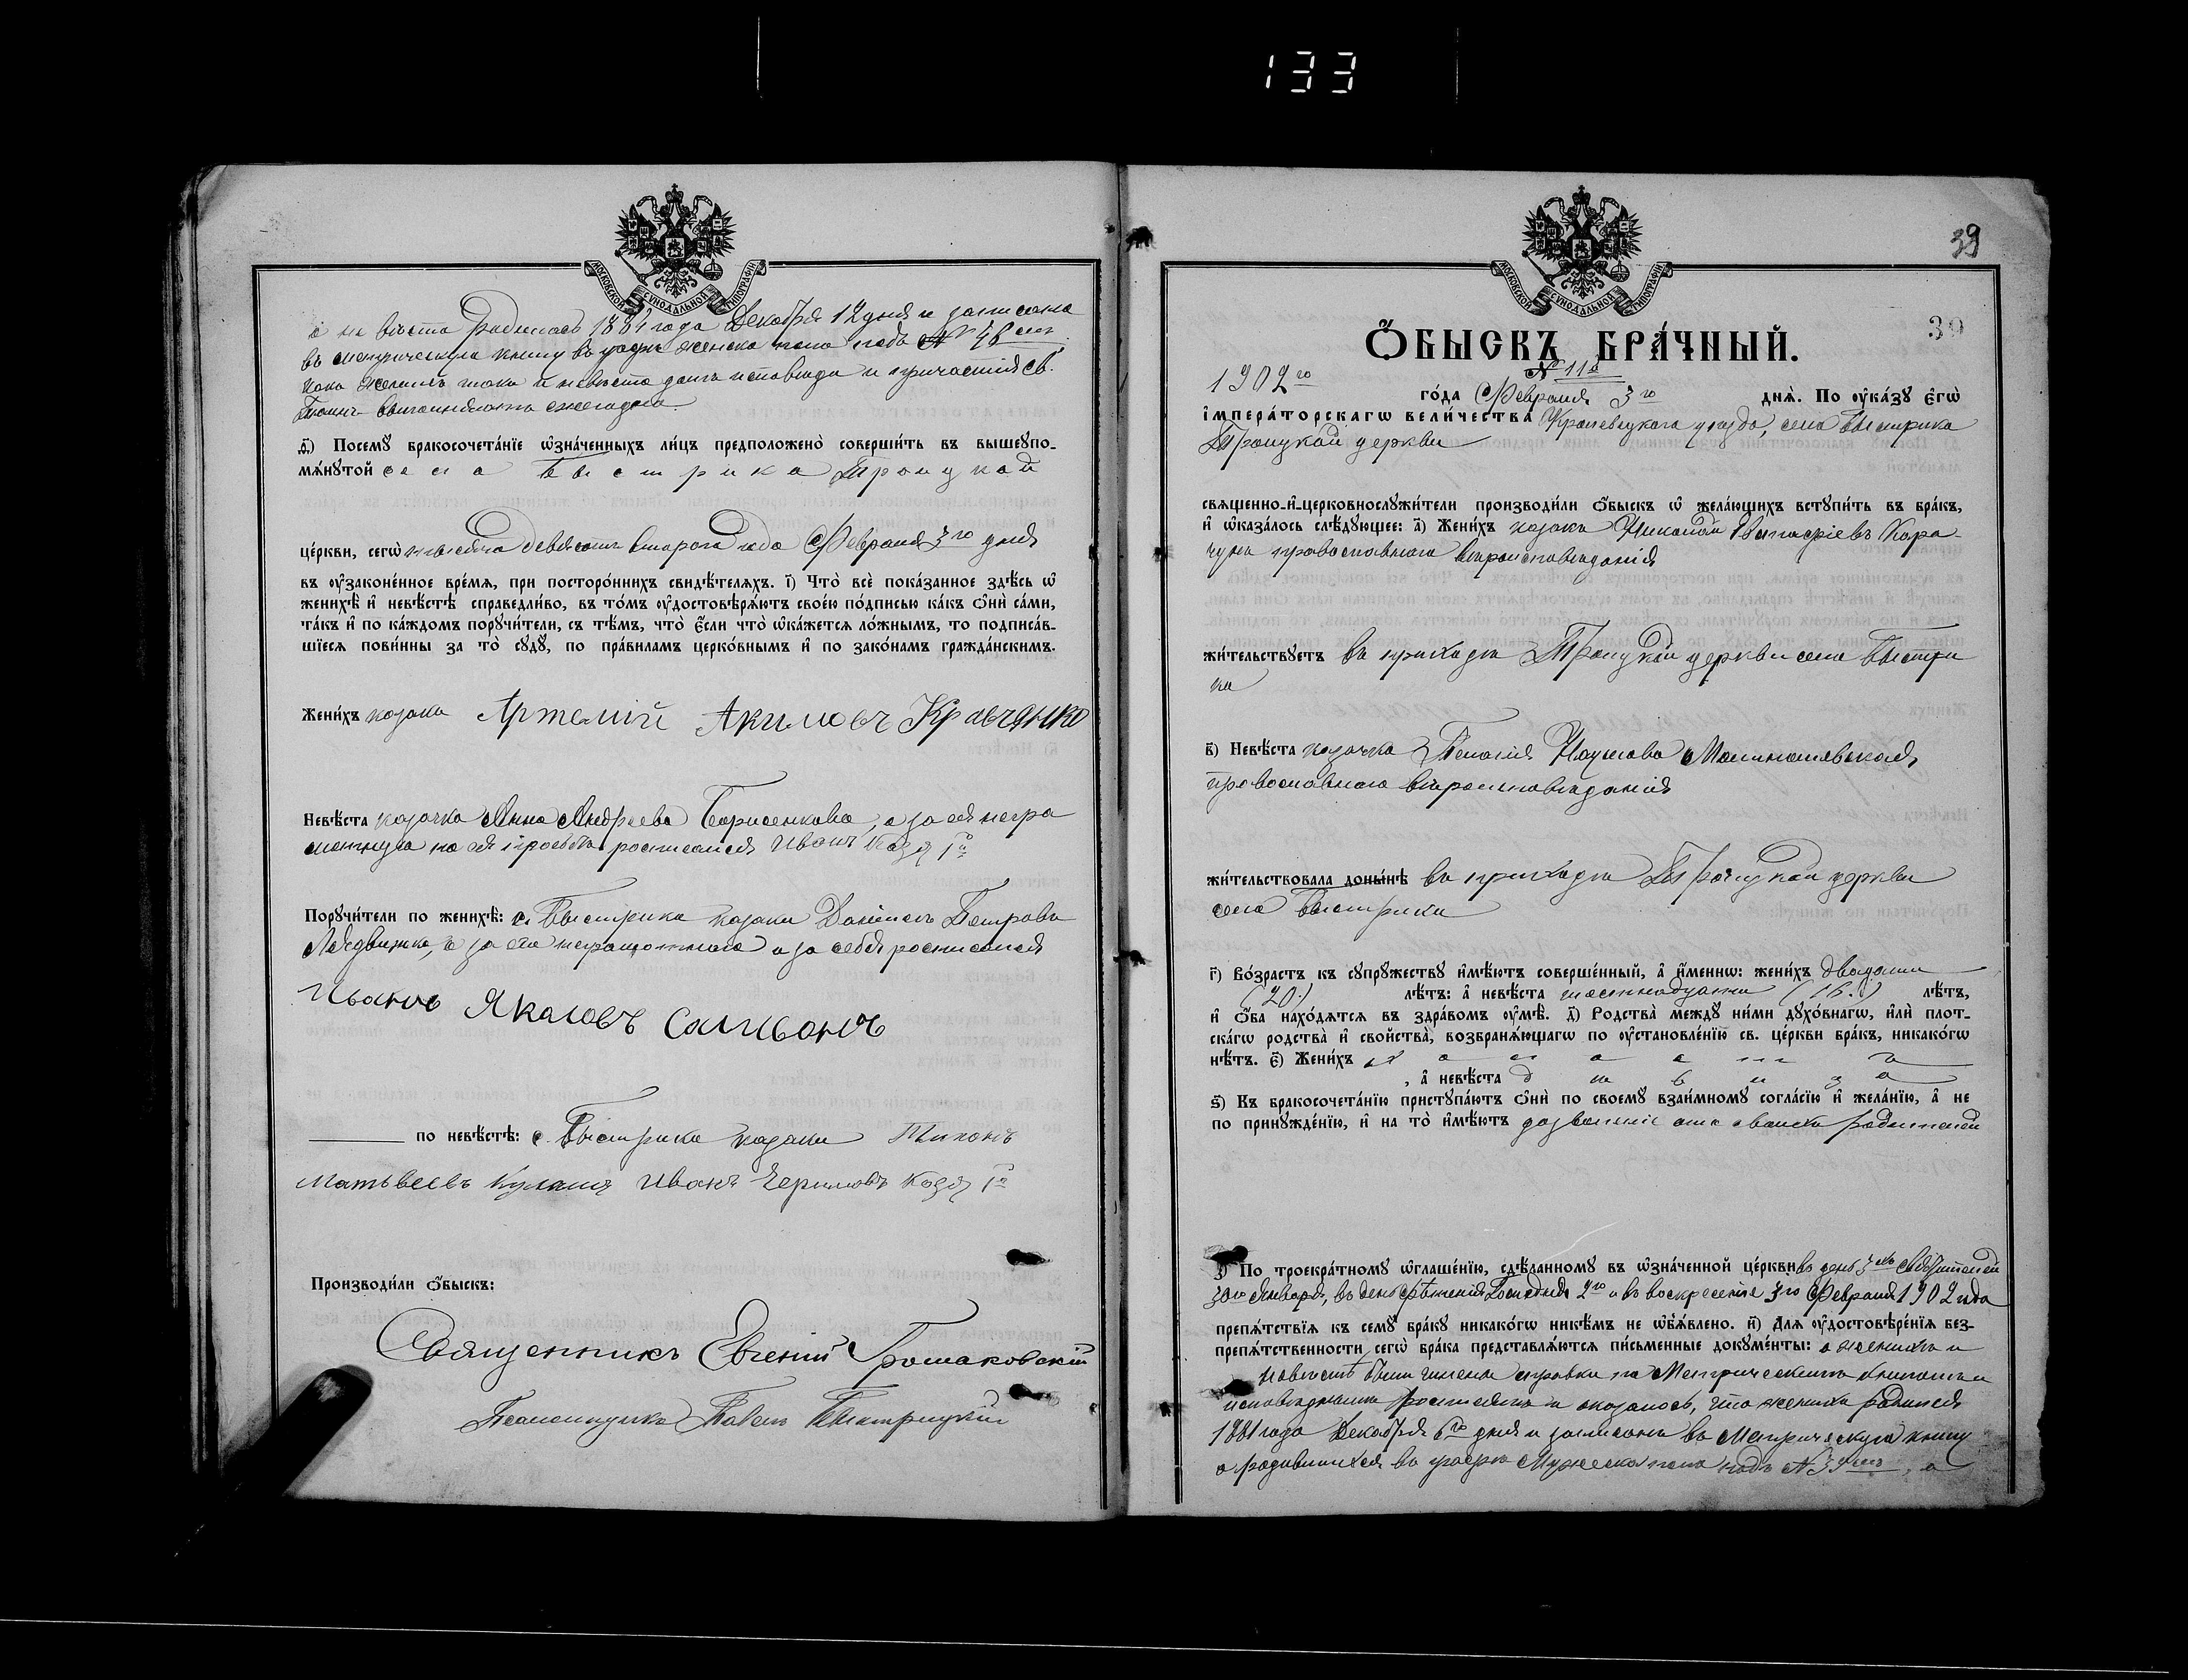 133
МОСКОВСКОЙ СѴНОДАЛЬНОЙ ТИПОГРАФІИ
а невѣста родилась 1884 года Декабря 12 дня и записана
въ метрическую книгу въ графѣ женска пола подъ № 48
какъ женихъ такъ и невѣста долгъ исповѣди и причастія Св.
Таинъ выполняютъ ежегодно.
Посемꙋ бракосочета́нїе ѡ҆зна́ченныхъ ли́цъ предположено̀ соверши́ть въ вышеꙋпо-
мѧ́нꙋтой села Быстрика Троицкой
це́ркви, сегѡ̀ тысяча девятсотъ второго года Февраля 3го дня
въ ᲂу҆зако́ненное вре́мѧ, при посторо́ннихъ свидѣ́телѧхъ. і҃) Что̀ всѐ пока́занное здѣ́сь ѡ҆
женихѣ̀ и҆ невѣ́стѣ справедли́во, въ то́мъ ᲂу҆достовѣрѧ́ютъ свое́ю по́дписью ка́къ ѻ҆нѝ са́ми,
та́къ и҆ по ка́ждомъ порꙋчи́тели, съ тѣ́мъ, что̀ є҆́сли что̀ ѡ҆ка́жетсѧ ло́жнымъ, то подписа́в-
шїесѧ пови́нны за то̀ сꙋдꙋ̀, по пра́виламъ церко́внымъ и҆ по зако́намъ гражда́нскимъ.
Жени́хъ козакъ Артемій Акимовъ Кравчянко
Невѣ́ста козачка Анна Андреева Борисенкова, а за ея негра
мотную по ея прозьбѣ росписался Иванъ Козя 1й
Порꙋчи́тели по женихѣ̀: с. Быстрика козаки Даніилъ Петровъ
а за его неграмотнаго и за себя росписался
Иванъ Якаловъ
по невѣ́стѣ: с. Быстрика козаки Тихонъ
Матвѣевъ Иванъ Козя 1й
Производи́ли ѻ҆́быскъ:
Священникъ Евгеній Громаковскій
Псаломщикъ Павелъ Быстрицкій
39
МОСКОВСКОЙ СѴНОДАЛЬНОЙ ТИПОГРАФІИ
39
Ѻ҆́БЫСКЪ БРА́ЧНЫЙ.
№ 11й
1902го го́да Февраля 3го днѧ̀. По ᲂу҆ка́зꙋ є҆гѡ̀
і҆мпера́торскагѡ вели́чества Кролевецкаго уѣзда, села Быстрика
Троицкой церкви
свѧще́нно-и҆-церковнослꙋжи́тели производи́ли ѻ҆́быскъ ѡ҆ жела́ющихъ встꙋпи́ть въ бра́къ,
и҆ ѡ҆каза́лось слѣ́дꙋющее: а҃) Жени́хъ козакъ Никодимъ Кара-
чунъ православнаго вѣроисповѣданія
жи́тельствꙋетъ въ приходѣ Троицкой церкви села Быстри
ка
в҃) Невѣ́ста козачка Пелагія Наумова
православнаго вѣроисповѣданія
жи́тельствовала доны́нѣ въ приходѣ Троицкой церкви
села Быстрика
г҃) Во́зрастъ къ сꙋпрꙋ́жествꙋ и҆мѣ́ютъ соверше́нный, а҆ и҆́меннѡ: жени́хъ двадцати
(20.) лѣ́тъ: а҆ невѣ́ста шестнадцати (16.) лѣ́тъ,
и҆ ѻ҆́ба нахо́дѧтсѧ въ здра́вомъ ᲂу҆мѣ̀. д҃) Родства̀ междꙋ̀ ни́ми дꙋхо́внагѡ, и҆лѝ пло́т-
скагѡ родства̀ и҆ свойства̀, возбранѧ́ющагѡ по ᲂу҆становле́нїю св. це́ркви бра́къ, никако́гѡ
нѣ́тъ. є҃) Жени́хъ холостъ
, а҆ невѣ́ста дѣвица
ѕ҃) Къ бракосочета́нїю пристꙋпа́ютъ ѻ҆нѝ по своемꙋ̀ взаи́мномꙋ согла́сїю и҆ жела́нїю, а҆ не
по принꙋжде́нїю, и҆ на то̀ и҆мѣ́ютъ дозволеніе отъ своихъ родителей
з҃) По троекра́тномꙋ ѡ҆глаше́нїю, сдѣ́ланномꙋ въ ѡ҆зна́ченной це́ркви въ день 3хъ Святителей
30го Января, въ день Срѣтенія Господня 2го и въ воскресеніе 3го Февраля 1902 года
препѧ́тствїѧ къ семꙋ̀ бра́кꙋ никако́гѡ никѣ́мъ не ѡ҆б̾ѧ́влено. и҃) Длѧ ᲂу҆достовѣре́нїѧ без-
препѧ́тственности сегѡ̀ бра́ка представлѧ́ютсѧ пи́сьменные докꙋме́нты: о женихѣ и
невѣстѣ были чинены справки по Метрическимъ книгамъ и
исповѣднымъ росписямъ и оказалось, что женихъ родился
1881 года Декабря 6го дня и записанъ въ Метрическую книгу
о родившихся въ графѣ Мужеска пола подъ № 39, а